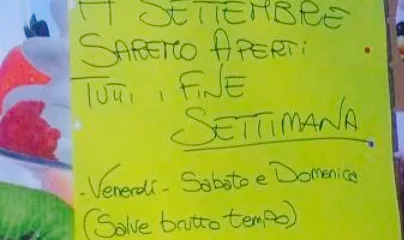 A SETTEMBRE
SAREMO APERTI
TUTTI I FINE
SETTIMANA
- Venerdí - Sabato e Domenica
(Salve brutto tempo)